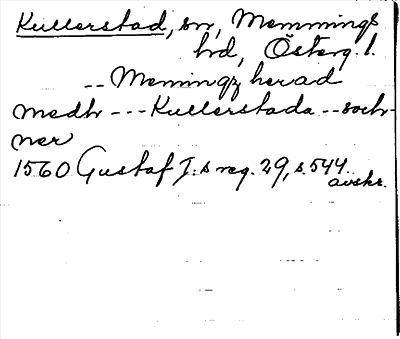 Kullerstad, sn, Memmings
hd, Österg. l.
-- Memingz herad
medh --- Kullerstada -- soch-
ner
1560 Gustaf I:s reg. 29, s. 544.
avskr.